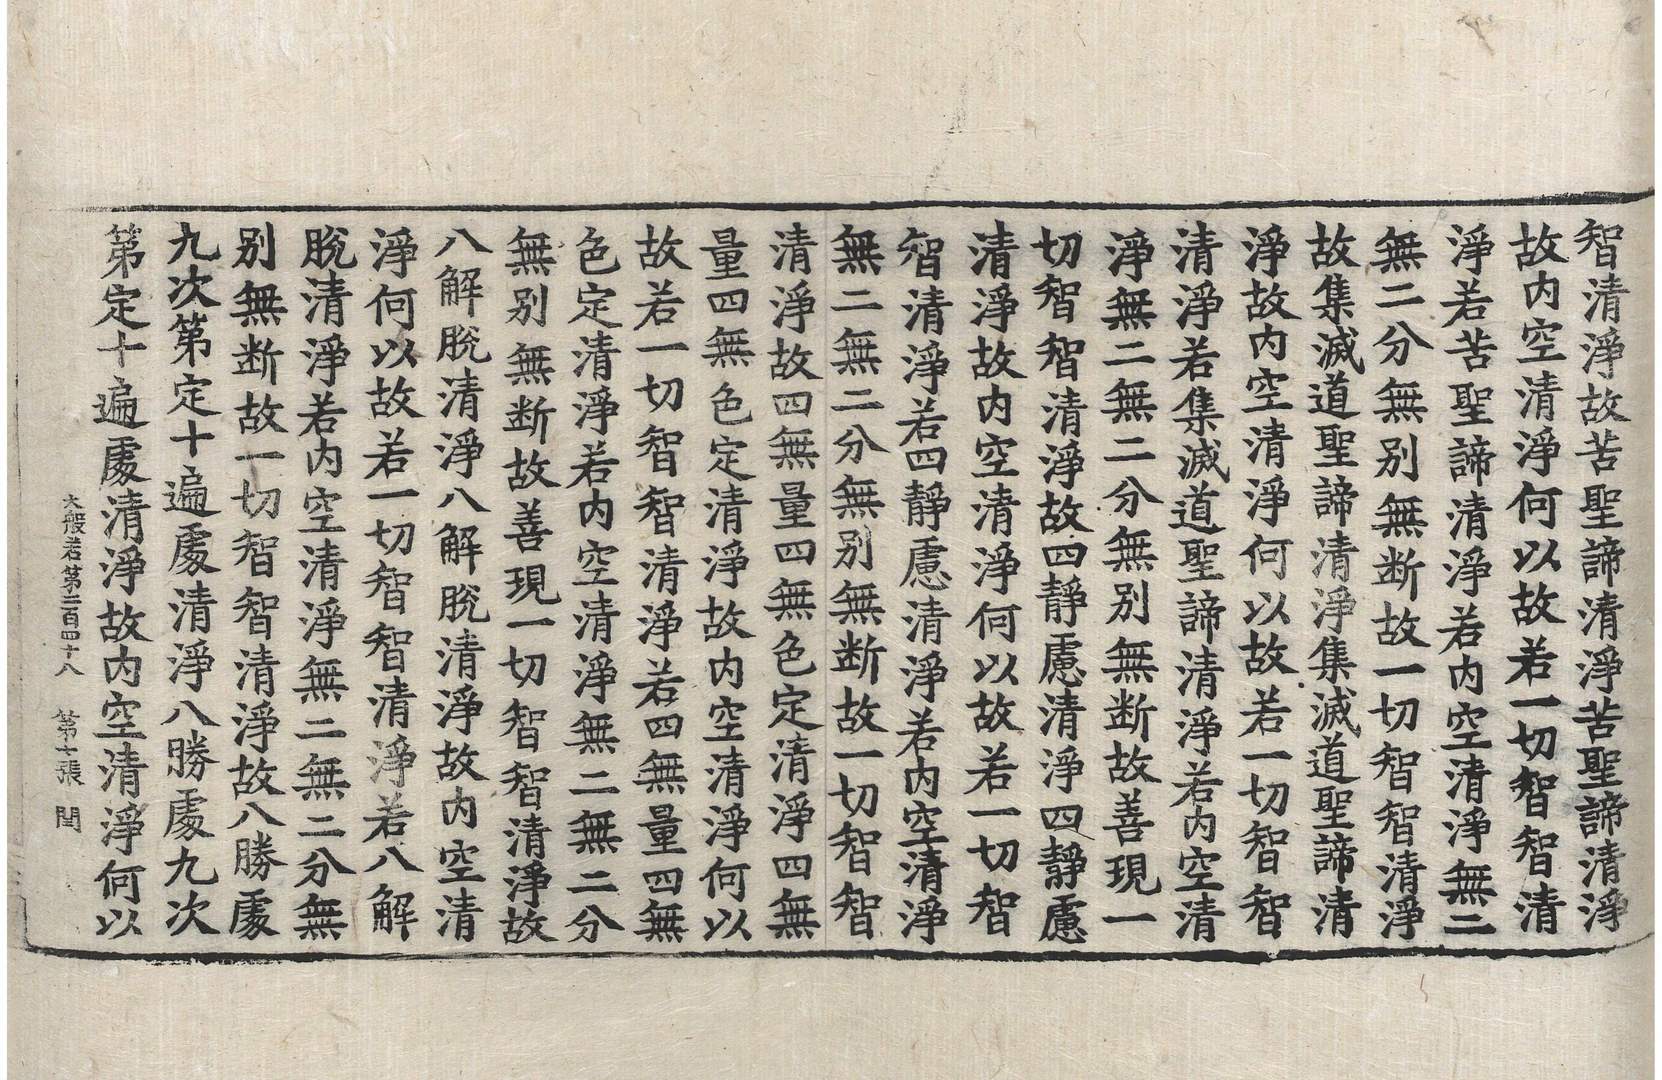 智清淨故苦聖諦清淨苦聖諦清淨
故内空清淨何以故若一切智智清
淨若苦聖諦清淨若内空清淨無二
無二分無別無断故一切智智清淨
故集滅道聖諦清淨集滅道聖諦清
淨故内空清淨何以故若一切智智
清淨若集滅道聖諦清淨若内空清
淨無二無二分無別無断故善現一
切智智清淨故四靜慮清淨四靜慮
清淨故内空清淨何以故若一切智
智清淨若四靜慮清淨若内空清淨
無二無二分無别無断故一切智智
清淨故四無量四無色定清淨四無
量四無色定清淨故内空清淨何以
故若一切智智清淨若四無量四無
色定清淨若内空清淨無二無二分
無別無断故善現一切智智清淨故
八解脫清淨八解脫清淨故内空清
淨何以故若一切智智清淨若八解
脫清淨若内空清淨無二無二分無
別無断故一切智智清淨故八勝處
九次第定十遍處清淨八勝處九次
第定十遍處清淨故内空清淨何以
大般若第二百四十八 第七張 閏